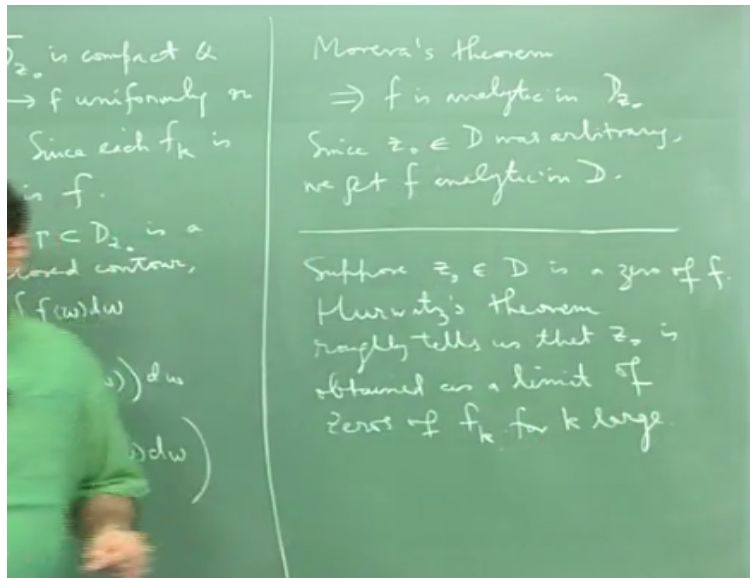 D̄_z₀ is compact &
→ f uniformly on
Since each f_k is
is f.
Γ ⊂ D_z₀ is a
closed contour,
∫ f(w)dw
))dw
)dw)
Morera's theorem
⇒ f is analytic in D_z₀
Since z₀ ∈ D was arbitrary,
we get f analytic in D.
Suppose z₀ ∈ D is a zero of f.
Hurwitz's theorem
roughly tells us that z₀ is
obtained as a limit of
zeros of f_k for k large.